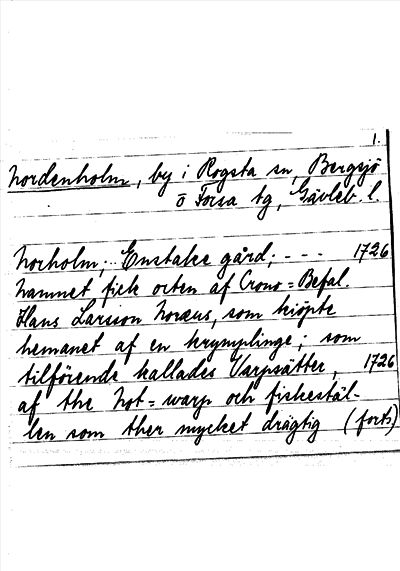 1.
Nordenholm, by i Rogsta sn, Bergsjö
o Forsa tg, Gävleb. l.
Norholm; Enstake gård; - - - 1726
Namnet fick orten af Crono=Befal.
Hans Larsson Noræus, som kiöpte
hemanet af en krymplinge; som
tilförende kallades Varpsätter, 1726
af the Not=warp och fiskestäl-
len som ther mycket drägtig (forts)